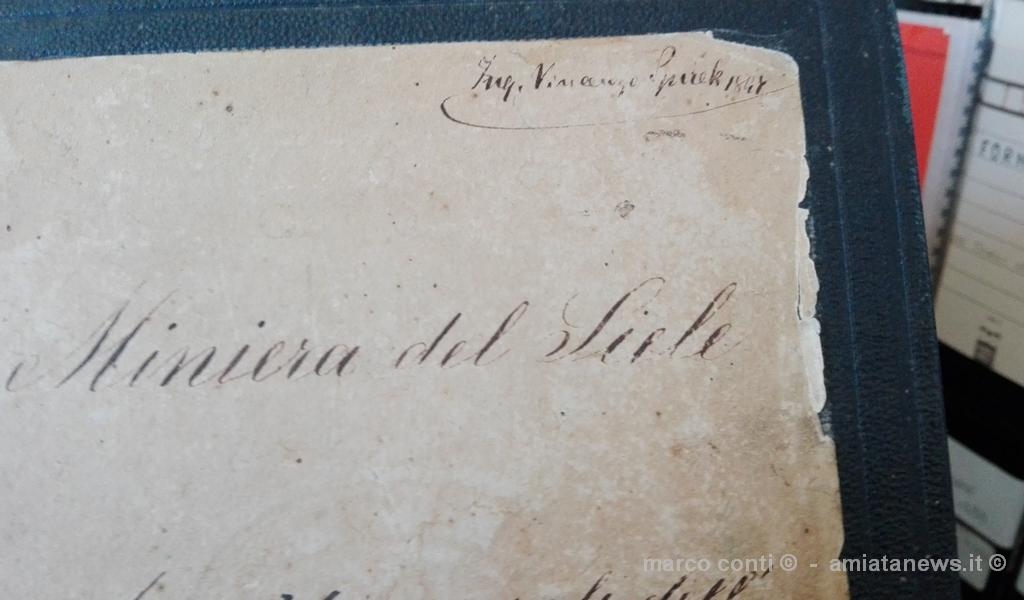 Ing. Vincenzo Spirek 1897
Miniera del Siele
dell'
FORM
marco conti © - amiatanews.it ©